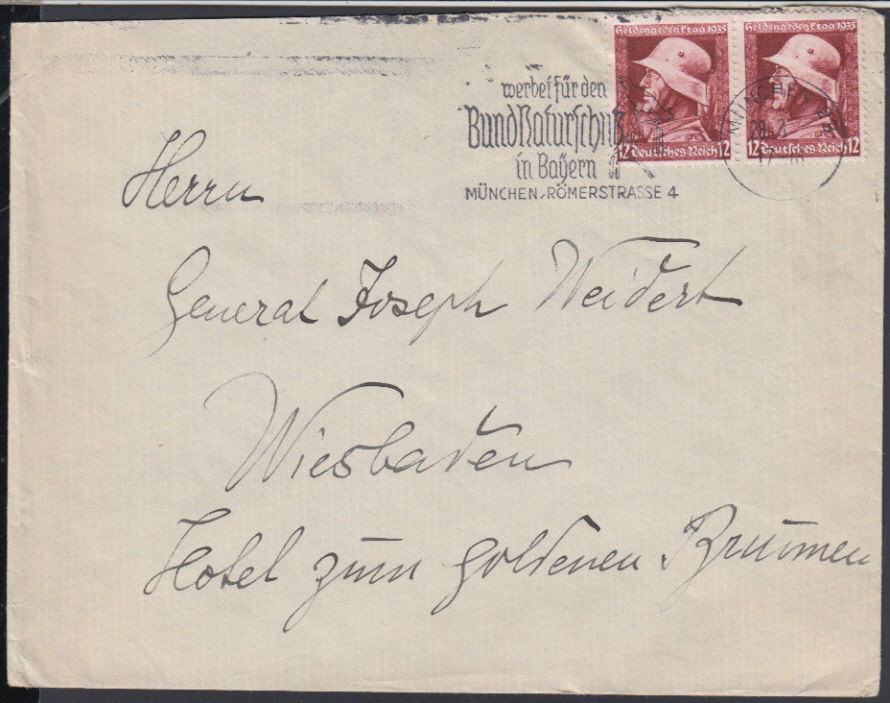 Heldengedenktag 1935 Heldengedenktag 1935
werbet für den
Bund Naturschutz
in Bayern
MÜNCHEN, RÖMERSTRASSE 4
12 Deutsches Reich 12 12 Deutsches Reich 12
MÜNCHEN
Herrn
General Joseph Weidert
Wiesbaden
Hotel zum goldenen Brunnen